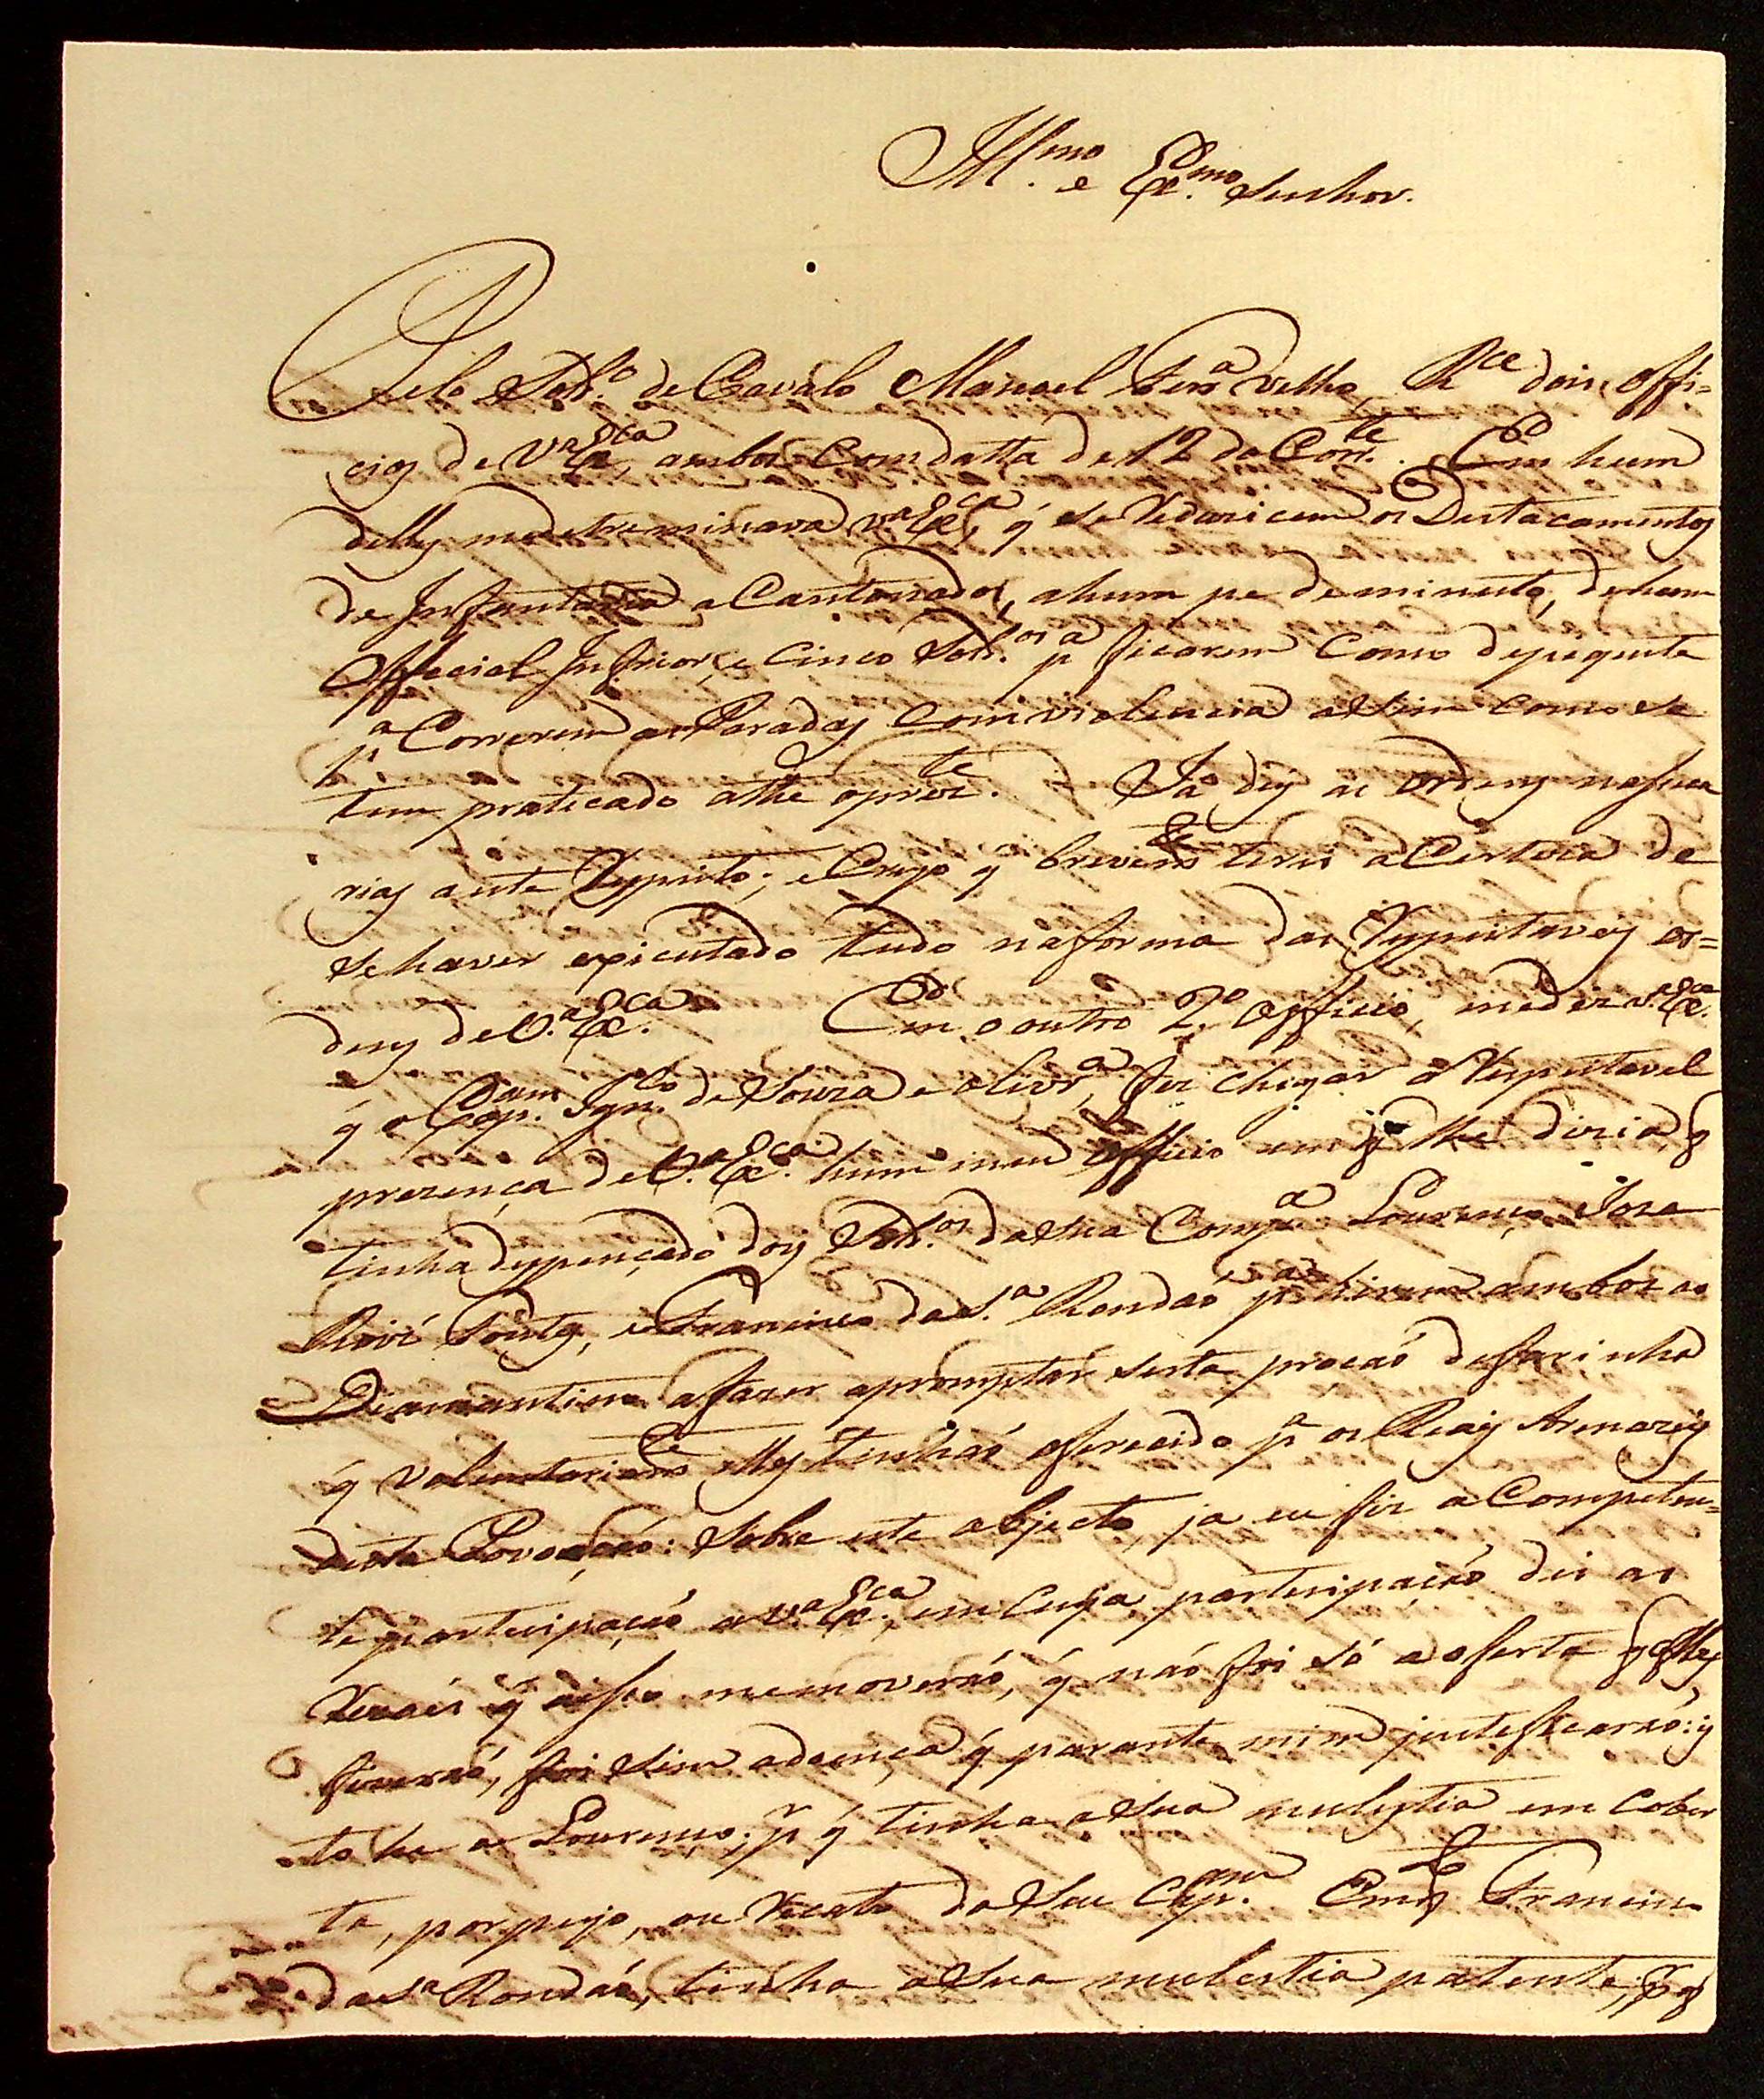 Ill.mo e Ex.mo Senhor.
Pelo Sold.o de Cavalo Manoel Ferr.a Velho, R.ce dois Offi=
cios de V.a Ex.ca, ambos Com datta de 12 do Corr.te. Em hum
delles me detreminava V.a Ex.ca, q̃ se Reduzicem os Destacamentos
de Infantaria aCantonados, a hum pe de minuto, de hum
Official Inferior, e Cinco Sold.os p.a ficarem Como depequete
p.a Correrem as Paradas Com violencia assim Como se
tem praticado athe oprez.te. Ja dej as ordens nesesa
rias a este Respeito; e Creyo q̃ brevem.te terei a Certeza de
se haver expicutado tudo na forma das Respeitaveis or=
dens de V.a Ex.ca. Em o outro 2.o Officio, me diz V.a Ex.ca
q̃ o Cap.am Ign.cio de Souza e Olivr.a, fez chegar â Respeitavel
prezença de V.a Ex.ca hum meu Officio em q̃ lhe dizia q̃
tinha despençado dois Sold.os da sua Comp.a Lourenço Joze
Roiz Fontes, e Francisco da S.a Rondaó p.a hirem ambos ao
Diamantino a fazer apromptar serta proçaó de farinha
q̃ voluntariam.te elles tinhaó oferecido p.a os Reais Armazeis
desta Povoaçaó: Sobre este objecto, ja eu fiz a Competen=
te partecipaçaó a V.a Ex.ca, em Cuja partecipaçaó dei as
Rezaóis q̃ aisso me moveraó, q̃ naó foi só a oferta q̃ elles
fizeraó, foi sim a doença q̃ parante mim justeficaraó: is
to he o Lourenço; p.r q̃ tinha a sua mulestia em Cober
ta, por pejo, ou Recato do Seu Cap.am Em q.to Francisco
da S.a Rondaó, tinha a sua mulestia patente, p.r q̃